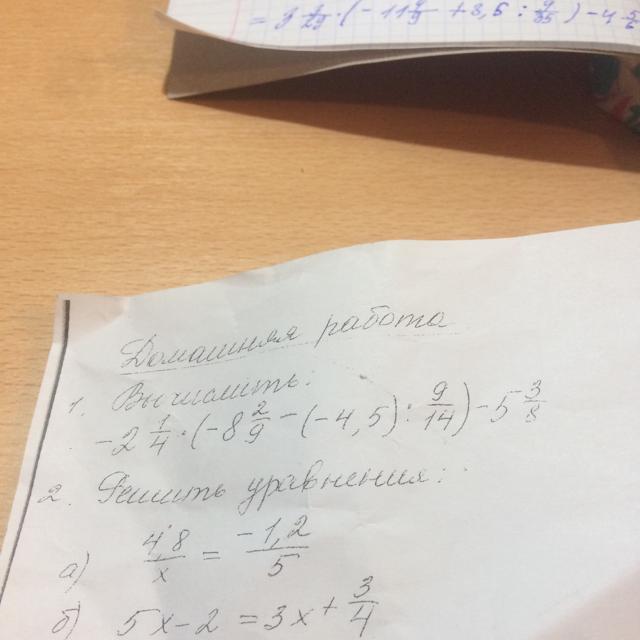 Домашняя работа
1. Вычислить:
-2 1/4 · (-8 2/9 - (-4,5) : 9/14) - 5 3/8
2. Решить уравнения:
а) 4,8/x = -1,2/5
б) 5x - 2 = 3x + 3/4